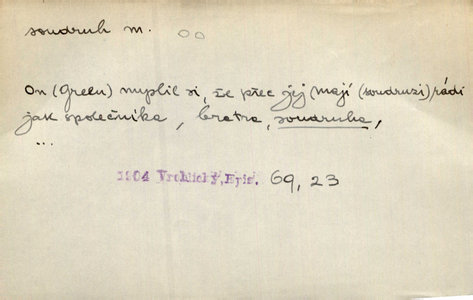 soudruh m. oo
On (Green) myslil si, že přec jej (mají (soudruzi) rádi
jak společníka, bratra, soudruha,
...
1904 Vrchlický, Epis. 69, 23